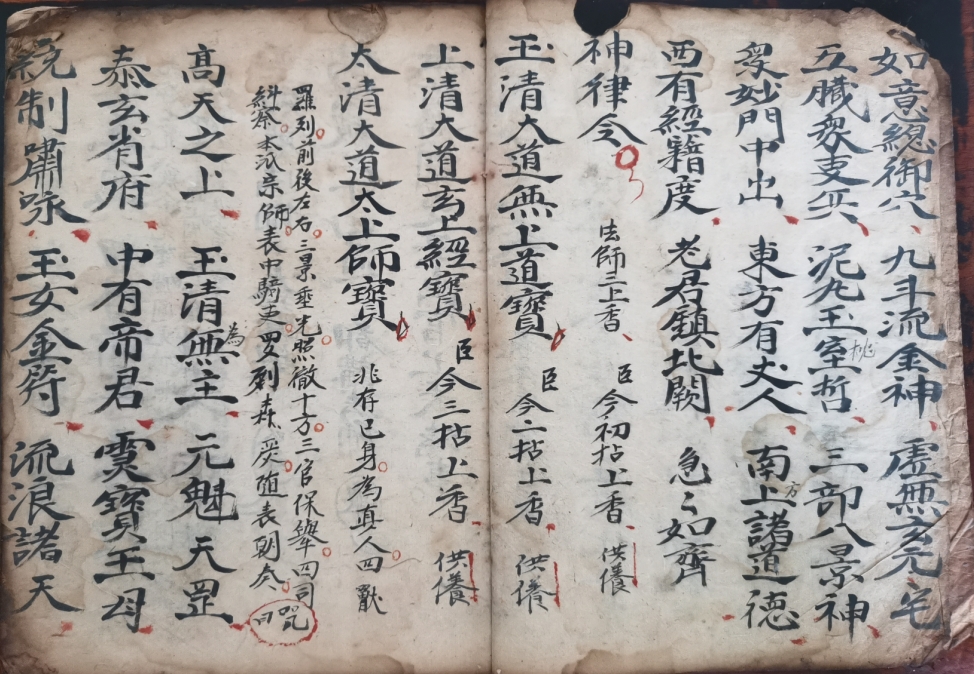 如意總御穴 九斗流金神 虛無玄元宅
五臟衆支兵 泥丸玉室哲 桃 三部八景神
衆妙門中出 東方有丈人 南上諸道德 方
西有經籍度 老君鎮北闕 急々如齊
神律令 法師三上香 臣 今初拈上香 供養
玉清大道無上道寶 臣 今二拈上香 供養
上清大道玄上經寶 臣 今三拈上香 供養
太清大道太上師寶 兆存己身為真人四獸
羅列前後左右三景垂光照徹十方三官保舉四司
糾察本派宗師表中騎吏羅列森 炭随表朝奏 咒曰
高天之上 玉清無主 為 元魁天罡
泰玄省府 中有帝君 靈寶王母
統制嘯咏 玉女金符 流浪諸天